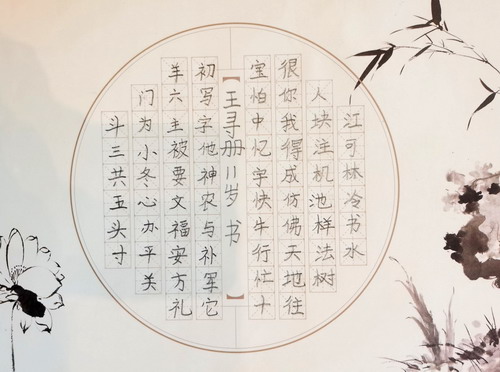 江可林冷书水
人块注机池样法树
很你我得成仿佛天地往
宝怕中忆字快牛行仕十
【王寻册11岁 书】
初写字他神农与补军它
羊六主被要文福安方礼
门为小冬心办平关
斗三共五头寸